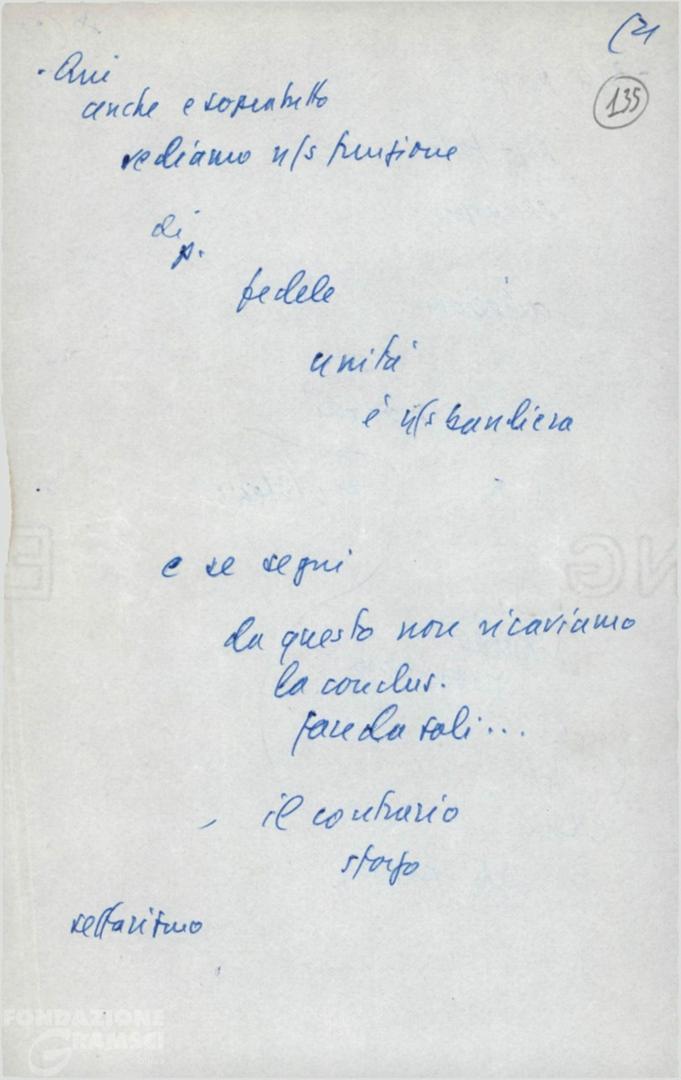 (21
135
· Qui
anche e sopratutto
vediamo n/s funzione
di
p.
fedele
unità
è n/s bandiera
e se segni
da questo non ricaviamo
la conclus.
fare da soli...
- il contrario
sforzo
settarismo
FONDAZIONE
GRAMSCI